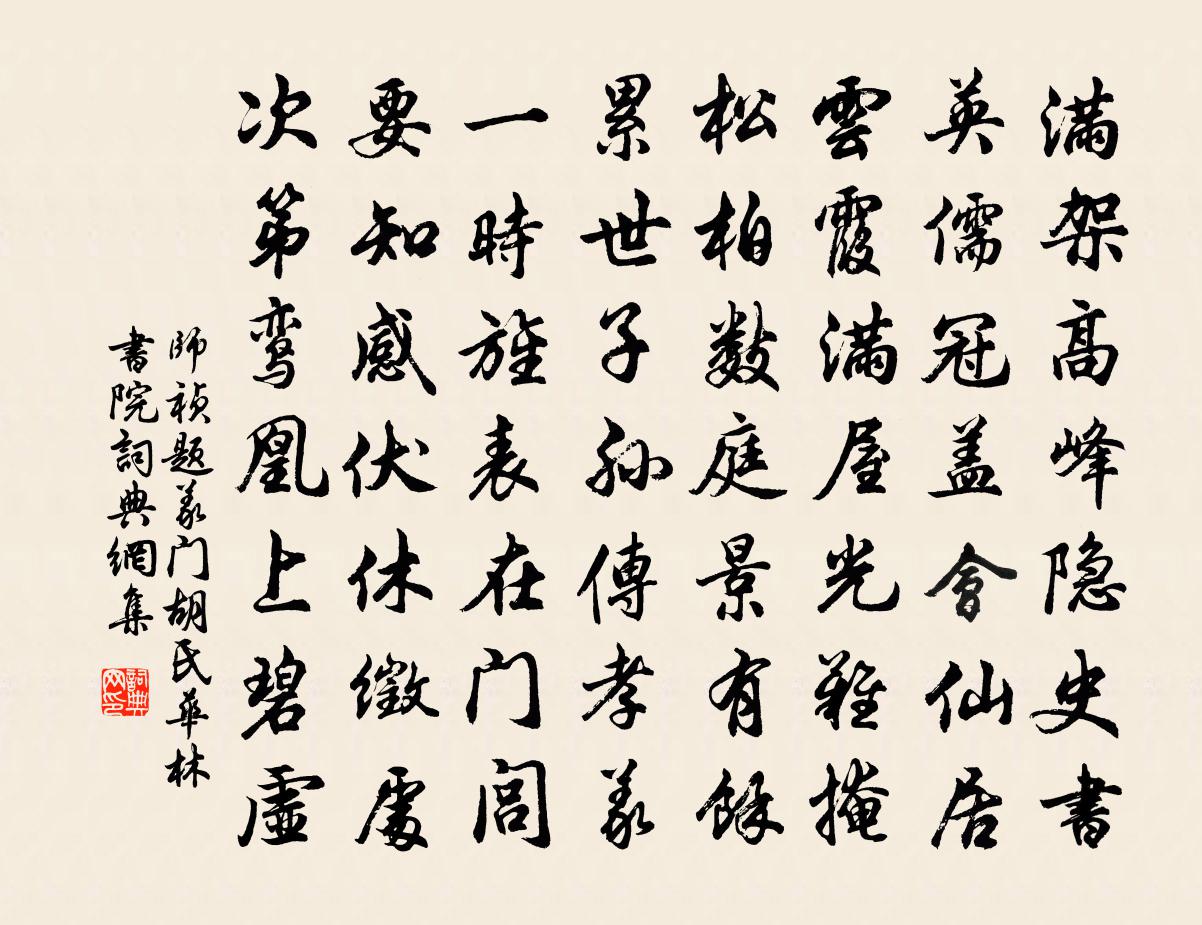 满架高峰隐史書
英儒冠盖會仙居
雲霞满屋光難掩
松柏數庭景有餘
累世子孙傳孝義
一時旌表在门閭
要知感伏休徵處
次第鸾凰上碧虛
師祯题義门胡氏華林
書院詞典網集
詞典网印